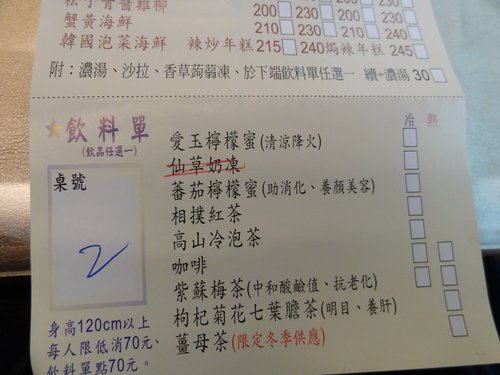 松子青醬雞柳 200 230
蟹黃海鮮 200 230 230
210 240 240
韓國泡菜海鮮 辣炒年糕 215 240 焗辣年糕 245
附：濃湯、沙拉、香草蒟蒻凍、於下端飲料單任選一 續+濃湯 30
飲料單
(飲品任選一)
冷 熱
桌號
2
愛玉檸檬蜜(清涼降火)
仙草奶凍
蕃茄檸檬蜜(助消化、養顏美容)
相撲紅茶
高山冷泡茶
咖啡
紫蘇梅茶(中和酸鹼值、抗老化)
枸杞菊花七葉膽茶(明目、養肝)
薑母茶(限定冬季供應)
身高120cm以上
每人限低消70元、
飲料單點70元。